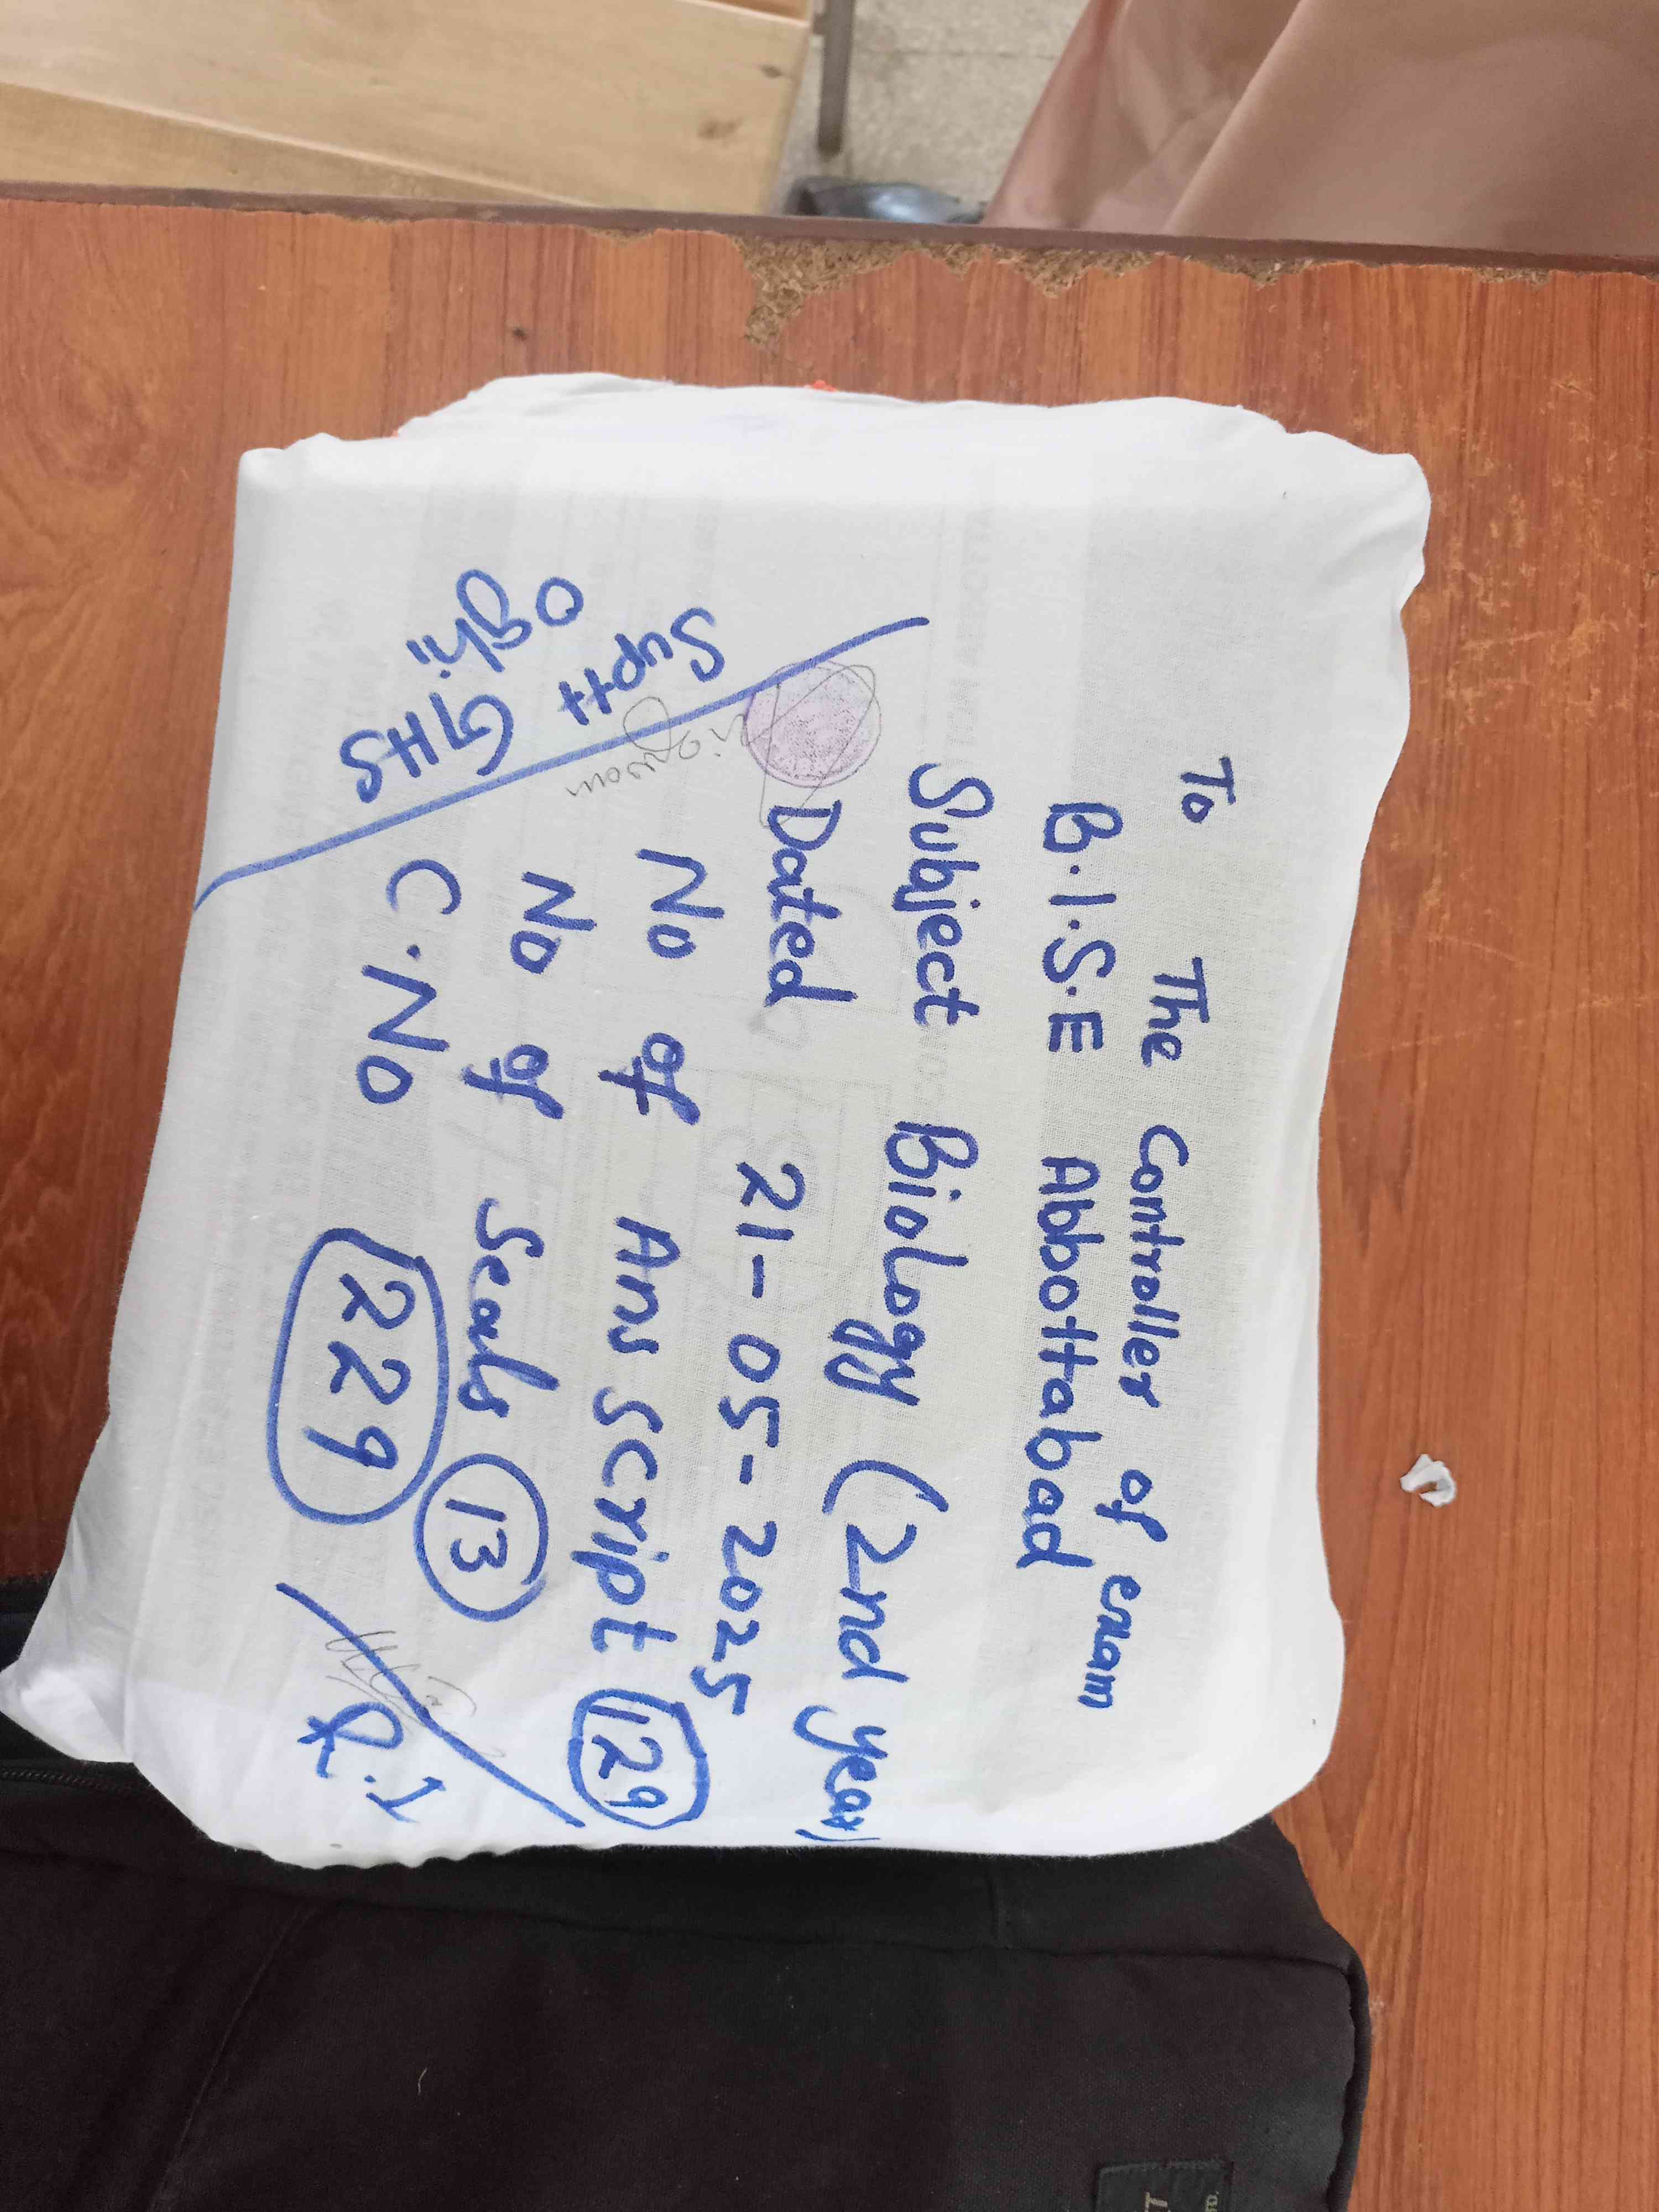 To The Controller of exam
B.I.S.E Abbottabad
Subject Biology (2nd year)
Dated 21-05-2025
No of Ans Script 129
No of Seals 13
C.No 229
Suptt
GHS
Oghi
R.I